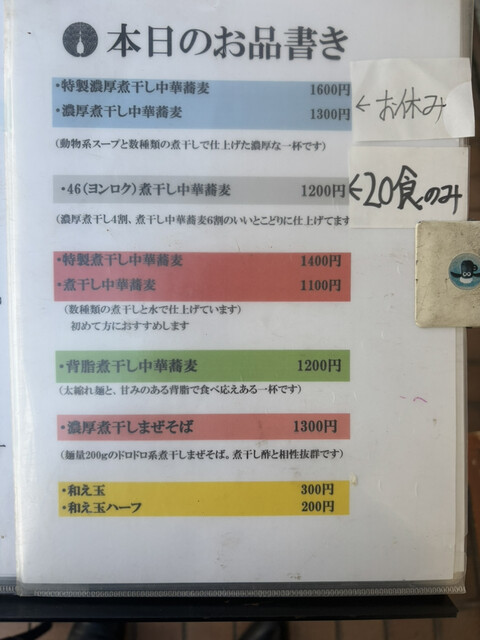 本日のお品書き
・特製濃厚煮干し中華蕎麦 1600円
・濃厚煮干し中華蕎麦 1300円
←お休み
(動物系スープと数種類の煮干しで仕上げた濃厚な一杯です)
・46(ヨンロク)煮干し中華蕎麦 1200円
←20食のみ
(濃厚煮干し4割、煮干し中華蕎麦6割のいいとこどりに仕上げてます
・特製煮干し中華蕎麦 1400円
・煮干し中華蕎麦 1100円
(数種類の煮干しと水で仕上げています)
初めて方におすすめします
・背脂煮干し中華蕎麦 1200円
(太縮れ麺と、甘みのある背脂で食べ応えある一杯です)
・濃厚煮干しまぜそば 1300円
(麺量200gのドロドロ系煮干しまぜそば。煮干し酢と相性抜群です)
・和え玉 300円
・和え玉ハーフ 200円